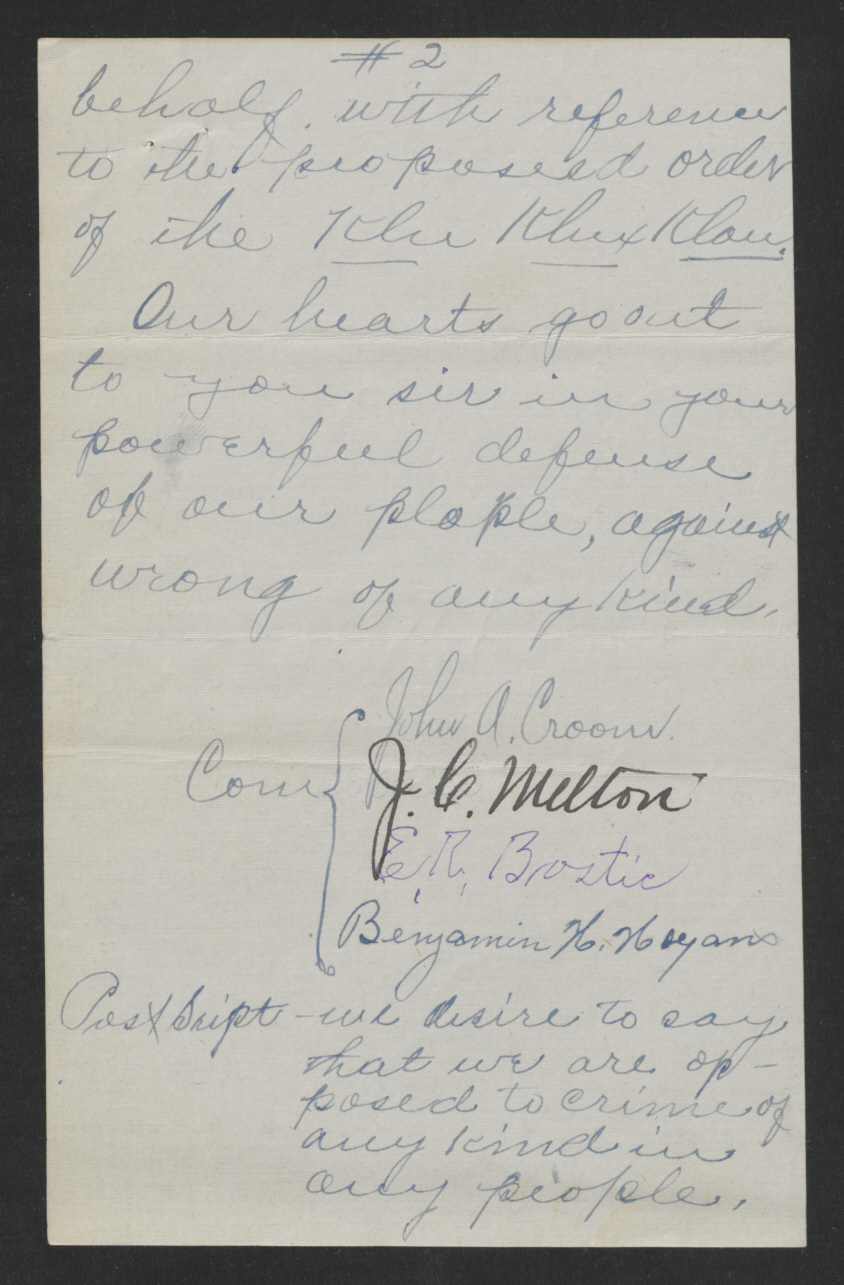 # 2
behalf. with reference
to the proposed order
of the Klu Khux Klan.
Our hearts go out
to you sir in your
powerful defense
of our plople, against
wrong of any kind.
John A. Croom.
Com
J. C. Melton
E. R. Bostic
Benjamin H. Hogans
PostSript - we desire to say
that we are op-
posed to crime of
any kind in
any people.